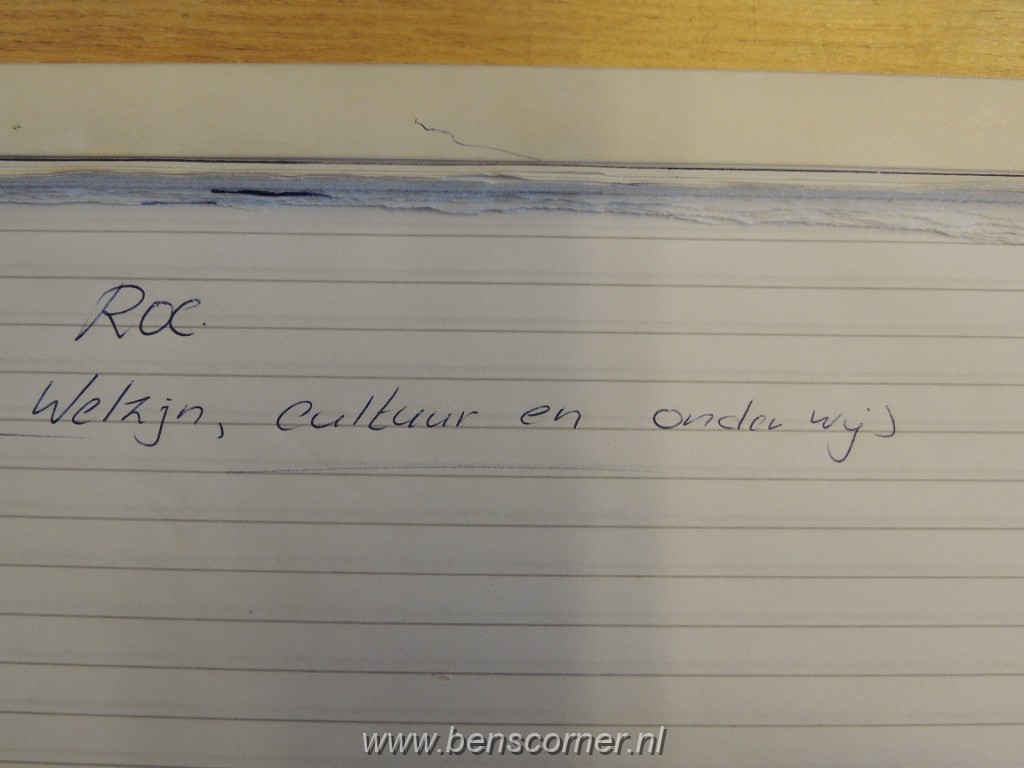 ROC.
Welzijn, cultuur en onderwijs
www.benscorner.nl